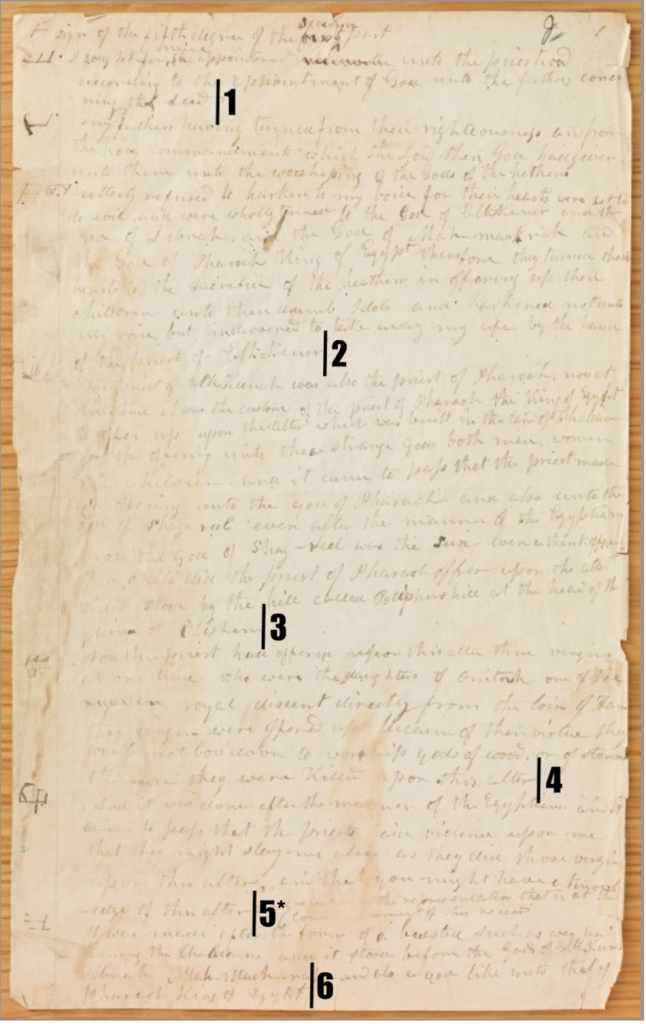 sign of the fifth degree of the second part
I sought for the appointment unto the priesthood
according to the appointment of God unto the fathers concer
ning the dead
1
my fathers having turned from their righteousness and from
the holy commandments which the Lord their God had given
unto them unto the worshiping of the Gods of the hethens
utterly refused to harken to my voice for their hearts were set to
do evil and were wholly turned to the God of Elkkener and the
God of Libnah and the God of Mah-mackrah and
the God of Pharaoh King of Egypt Therefore they turned their
hearts to the sacrifice of the heathens in offering up their
children unto their dumb Idols and harkened not unto
my voice but indeovered to take away my life by the hand
of the priest of Elkkener
2
The priest of Elkkener was also the priest of Pharaoh, now at
this time it was the custom of the priest of Pharaoh the King of Egypt
to offer up upon the alter which was built in the land of Chaldea
for the offering unto these strange Gods both men, women
and children and it came to pass that the priest made
an offering unto the god of Pharaoh and also unto the
god of Shag-reel even after the manner of the Egyptians
now the God of Shag-reel was the Sun even a thank offering
of a child did the priest of Pharaoh offer upon the alter
which stood by the hill called Potiphers hill at the head of the
plain of Olishem
3
Now this priest had offered upon this alter three virgins
at one time who were the daughters of Onitah one of the
royal discent directly from the loins of Ham
these virgins were offered up because of their virtue they
would not bow down to worship gods of wood, or of stone
they were killed upon this alter
4
and it was done after the manner of the Egyptians and it
came to pass that the priests laid violence upon me
that they might slay me also, as they did those virgins
upon this alter, and that you might have a knowl
edge of this alter
5*
I will refer you to the representation that is at the
commencement of this record
It was made after the form of a bedsted such as was had
among the Chaldeans and it stood before the Gods of Elkkener
Libnah Mah-Mach-rah and also a god like unto that of
Pharaoh King of Egypt
6